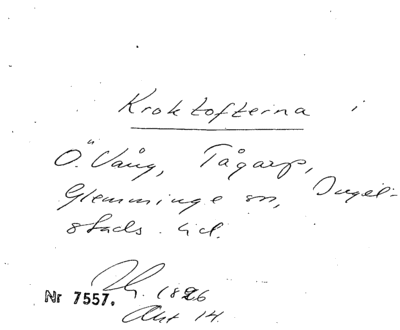 Kroktofterna i
Ö. Vång, Tågarp,
Glemminge sn, Ingel-
stads hd.
1826
Nr 7557.
Akt 14.